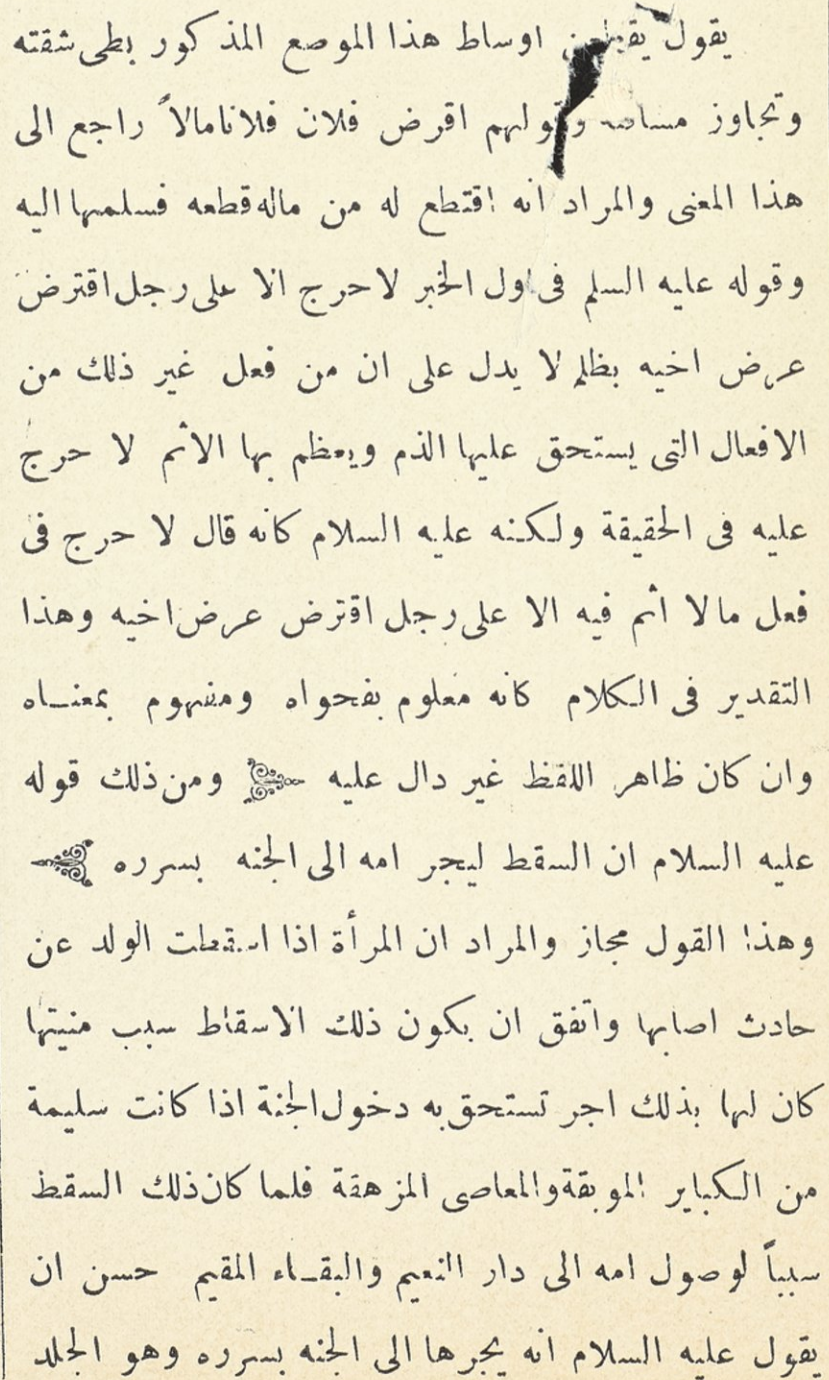 يقول يقطعن اوساط هذا الموصع المذكور بطى شقته
وتجاوز وقولهم اقرض فلان فلانا مالاً راجع الى
هذا المعنى والمراد انه اقتطع له من ماله قطعه فسلمها اليه
وقوله عليه السلم فى اول الخبر لا حرج الا على رجل اقترض
عرض اخيه بظلم لا يدل على ان من فعل غير ذلك من
الافعال التى يستحق عليها الذم ويعظم بها الأثم لا حرج
عليه فى الحقيقة ولكنه عليه السلام كانه قال لا حرج فى
فعل مالا أثم فيه الا على رجل اقترض عرض اخيه وهذا
التقدير فى الكلام كانه معلوم بفحواه ومفهوم بمعنـاه
وان كان ظاهر اللفظ غير دال عليه ومن ذلك قوله
عليه السلام ان السقط ليجر امه الى الجنه بسرره
وهذا القول مجاز والمراد ان المرأة اذا اسقطت الولد عن
حادث اصابها واتفق ان يكون ذلك الاسقاط سبب منيتها
كان لها بذلك اجر تستحق به دخول الجنة اذا كانت سليمة
من الكباير الموبقة والمعاصى المزهقة فلما كان ذلك السقط
سبباً لوصول امه الى دار النعيم والبقـاء المقيم حسن ان
يقول عليه السلام انه يجرها الى الجنه بسرره وهو الجلد